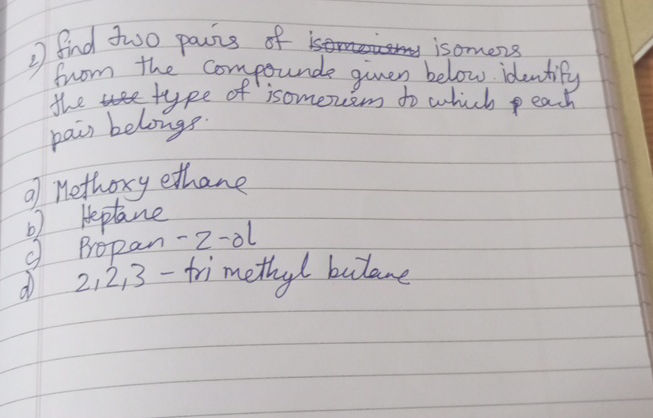 2) find two pairs of isomerisms isomers
from the compounds given below. identify
the use type of isomerism to which p each
pair belongs.
a) Methoxy ethane
b) Heptane
c) Propan - 2 - ol
d) 2,2,3 - tri methyl butane